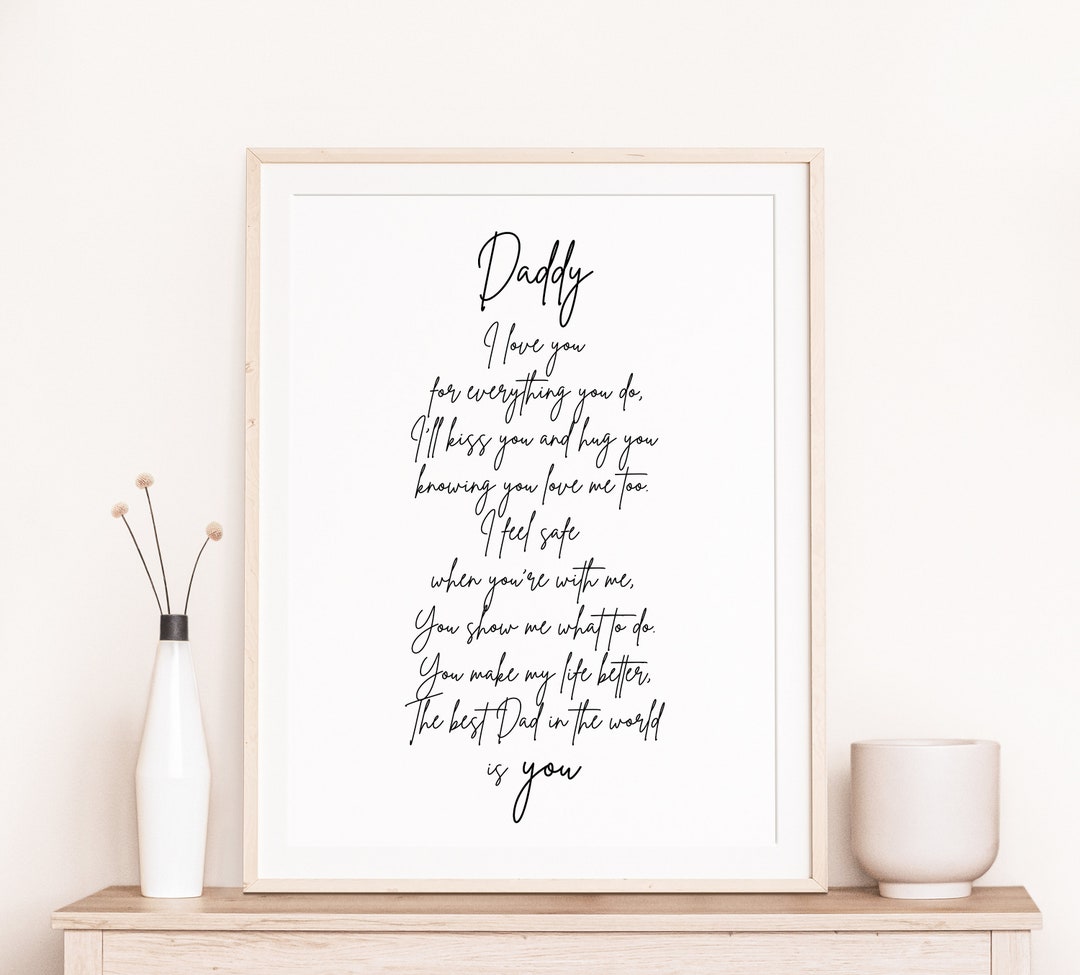 Daddy
I love you
for everything you do,
I'll kiss you and hug you
knowing you love me too.
I feel safe
when you're with me,
You show me what to do.
You make my life better,
The best Dad in the world
is you